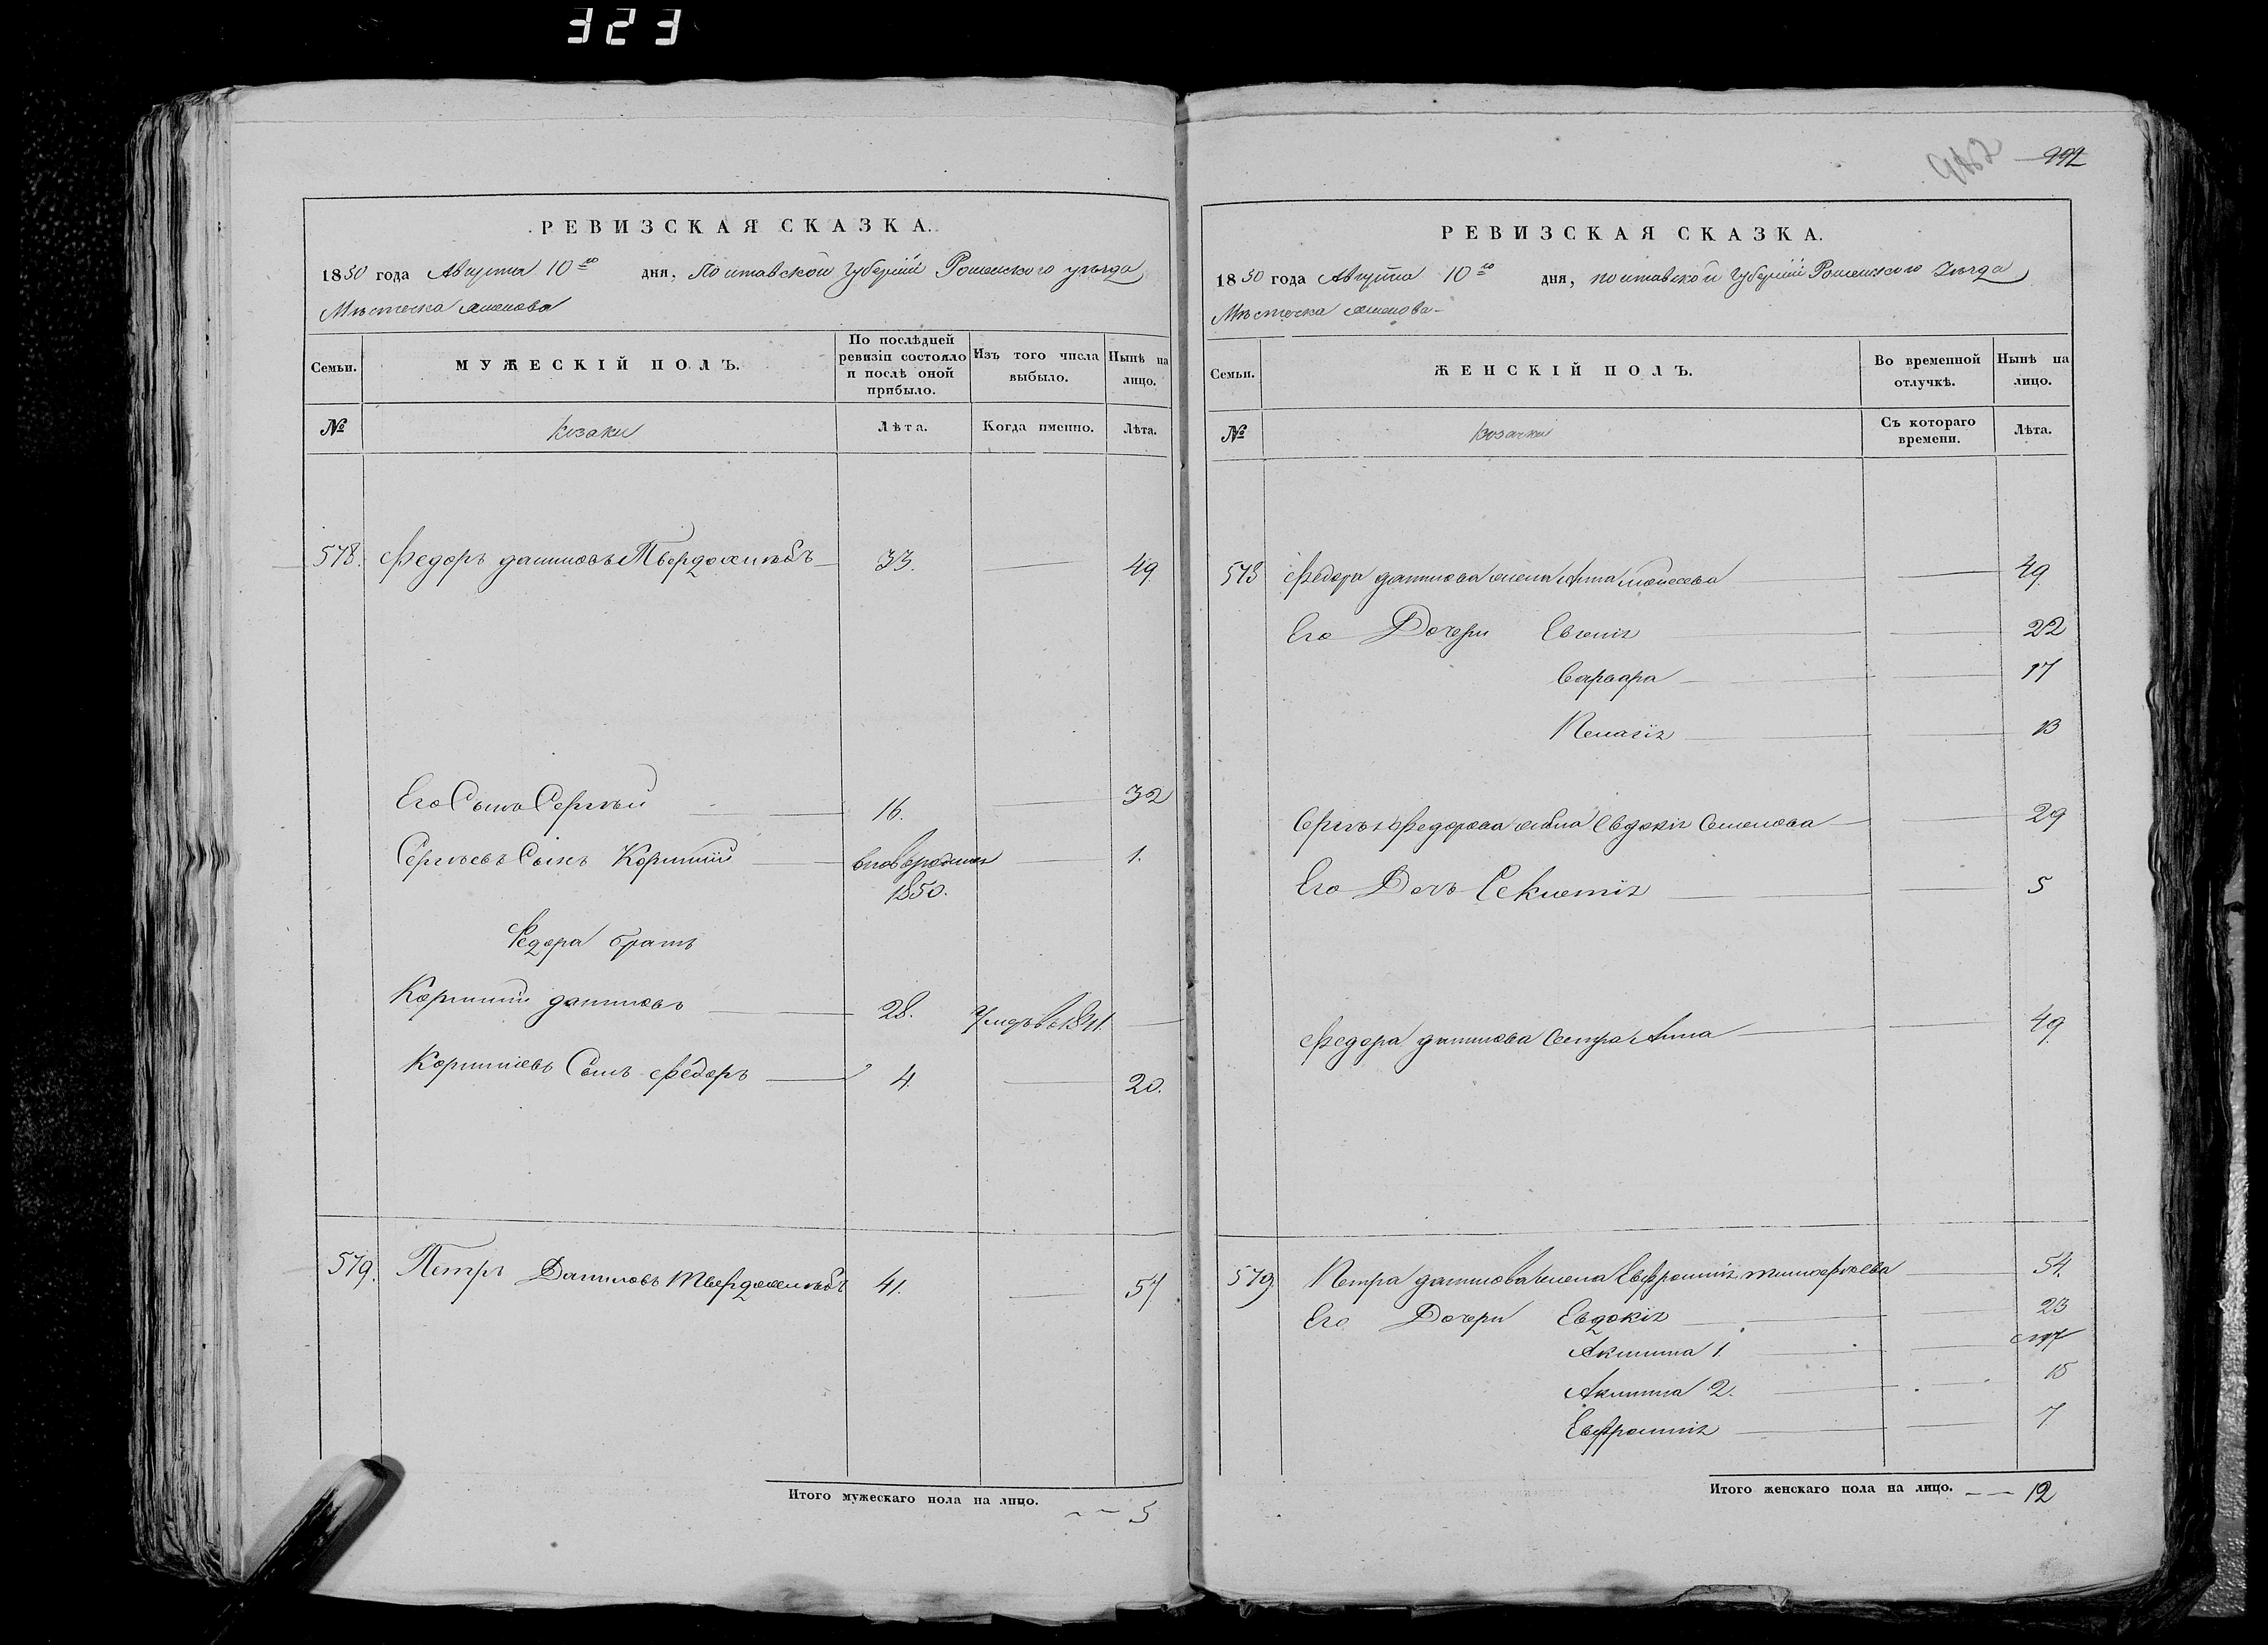 323
982 992
РЕВИЗСКАЯ СКАЗКА.
1850 года Августа 10го дня, Полтавской Губерніи Роменского уѣзда
Мѣстечка
Семьи. МУЖЕСКІЙ ПОЛЪ. По послѣдней ревизіи состояло и послѣ оной прибыло. Изъ того числа выбыло. Нынѣ на лицо.
№ Козаки Лѣта. Когда именно. Лѣта.
578. Федоръ Даниловъ Твердохлѣбъ 33. 49
Его Сынъ Сергѣй 16. 32
Сергѣевъ Сынъ Корнилій вновьрожден 1850. 1.
Федора братъ
Корнилій Даниловъ 28. Умеръ въ 1841.
Корниліевъ Сынъ Федоръ 4 20.
579. Петръ Даниловъ Твердохлѣбъ 41. 57
Итого мужескаго пола на лицо. 5
РЕВИЗСКАЯ СКАЗКА.
1850 года Августа 10го дня, Полтавской Губерніи Роменского Уѣзда
Мѣстечка
Семьи. ЖЕНСКІЙ ПОЛЪ. Во временной отлучкѣ. Нынѣ на лицо.
№ Козачки Съ котораго времени. Лѣта.
578 Федора Данилова жена Анна Моисеева 49
Его Дочери Евгенія 22
Варвара 17
Пелагія 13
Сергѣя Федорова жена Евдокія Семенова 29
Его Дочь Секлетія 5
Федора Данилова Сестра Анна 49
579 Петра Данилова жена Евфросинія Тимофѣева 54.
Его Дочери Евдокія 23
Акилина 1.
Акилина 2. 15
Евфросинія 7
Итого женскаго пола на лицо. 12